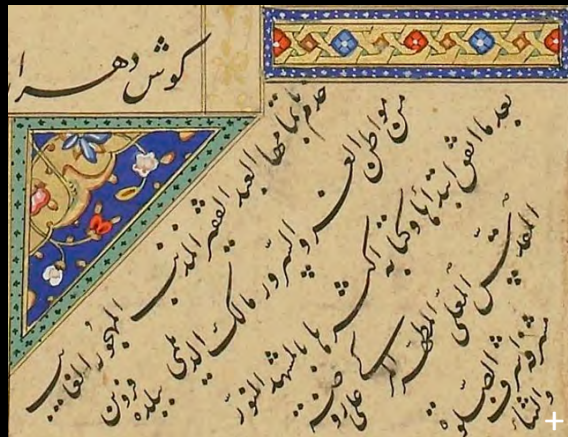 کوش دهر
خدم باتمامها العبد الفقیر المذنب المهجور الغایب
من مواطن العز و السرور مالک الدیلمی ببلده قزوین
بعد ما اتفق ابتدائها و کتابه اکثرها بالمشهد المنور
المقدس المعلی المطهر علی روضة
مشرفه اشرف الصلوة و الثنا